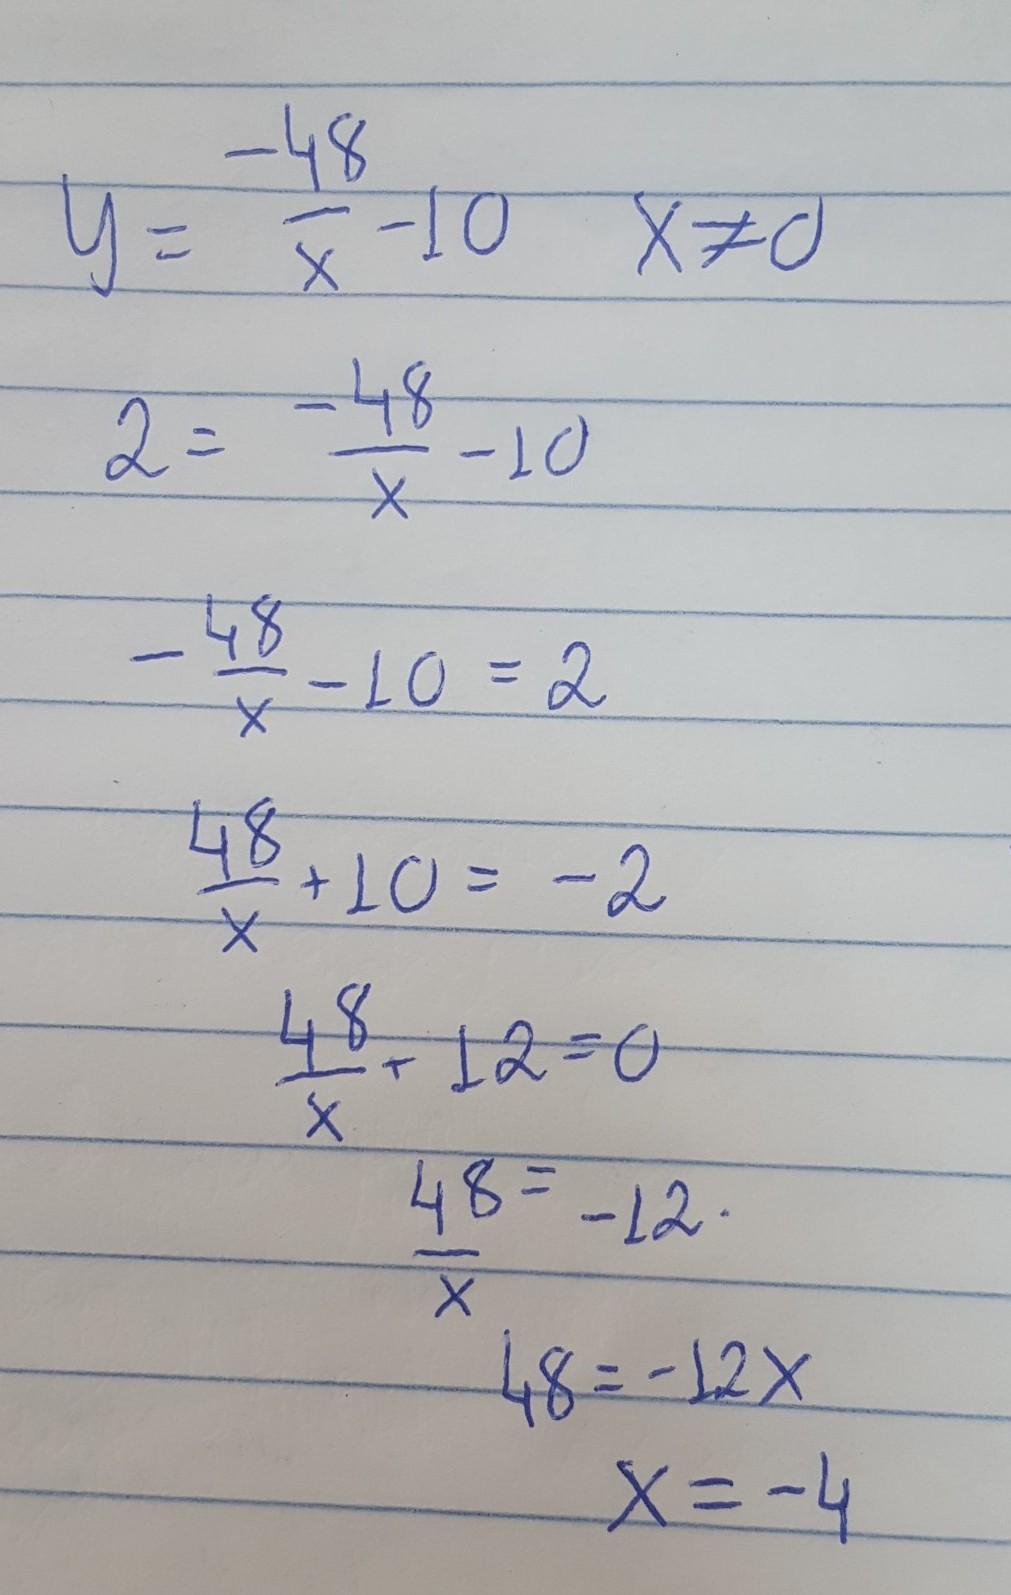 y = -48/x - 10   x ≠ 0
2 = -48/x - 10
- 48/x - 10 = 2
48/x + 10 = -2
48/x + 12 = 0
48/x = -12.
48 = -12x
x = -4